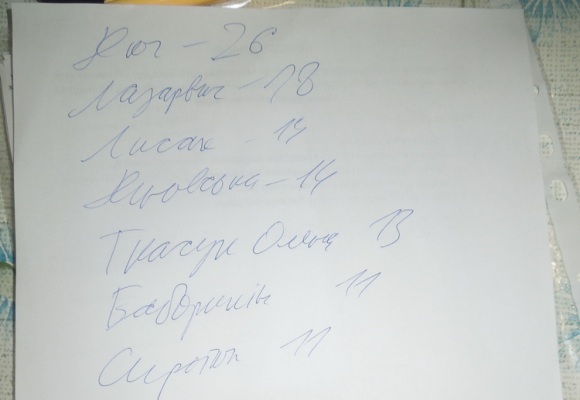 Жюг - 26
Лазарвич - 18
Лисак - 14
Яновська - 14
Ткачук Ольга 13
Баборкін 11
Сироток 11